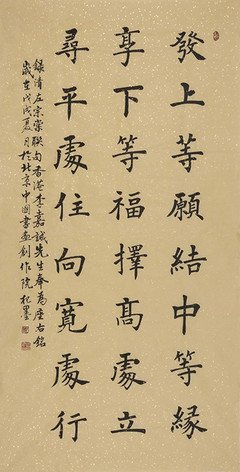 發上等願結中等緣
享下等福擇高處立
尋平處住向寬處行
錄清左宗棠聯句香港李嘉誠先生奉為座右銘
歲在戊戌夏月於北京中國書畫創作院